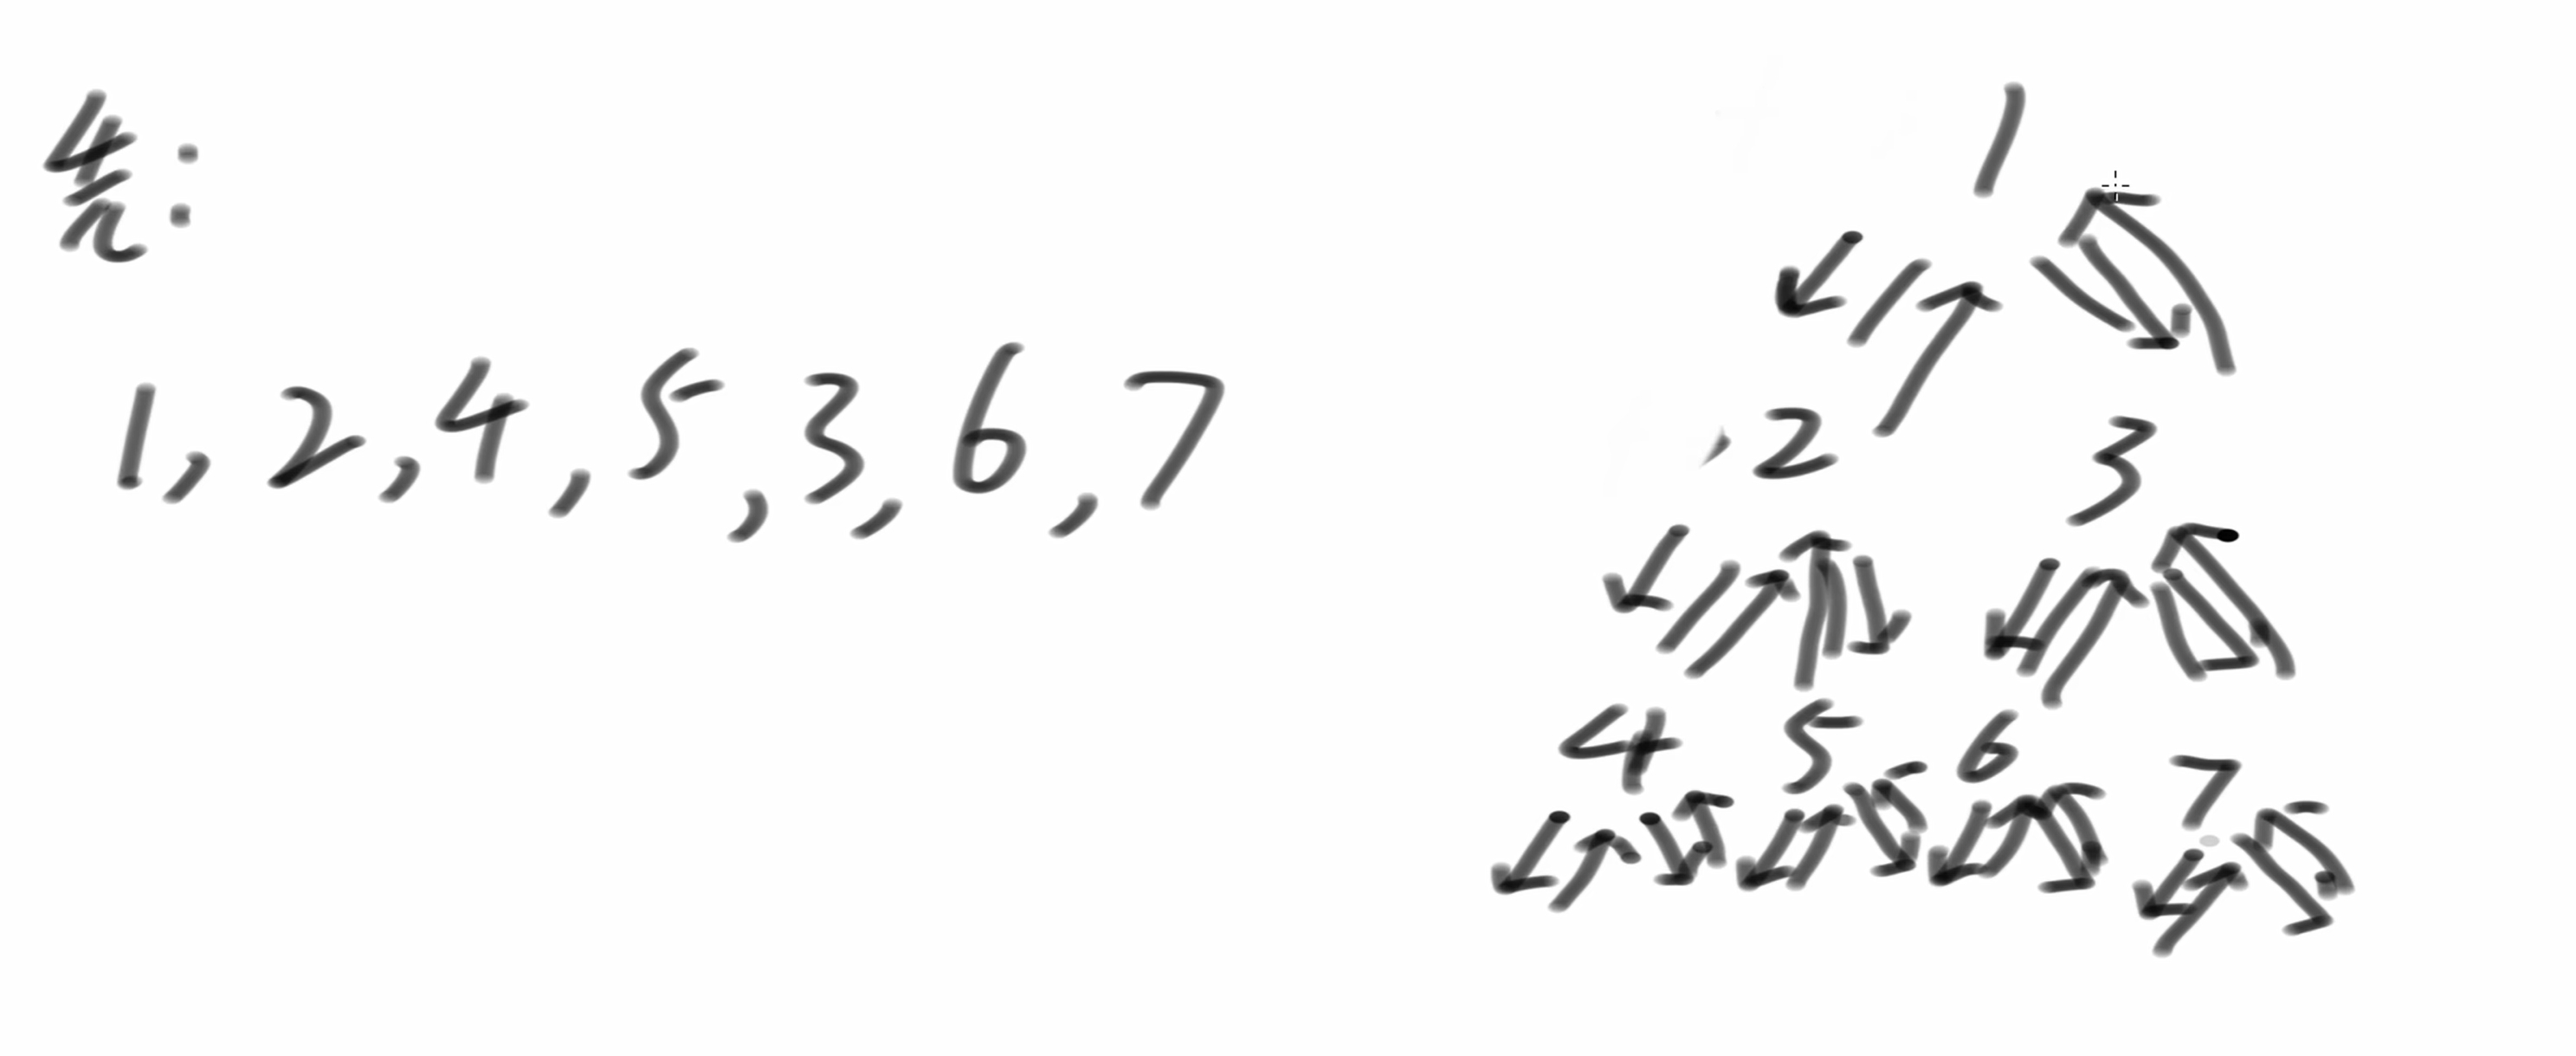 先:
1,2,4,5,3,6,7
1
2 3
4 5 6 7